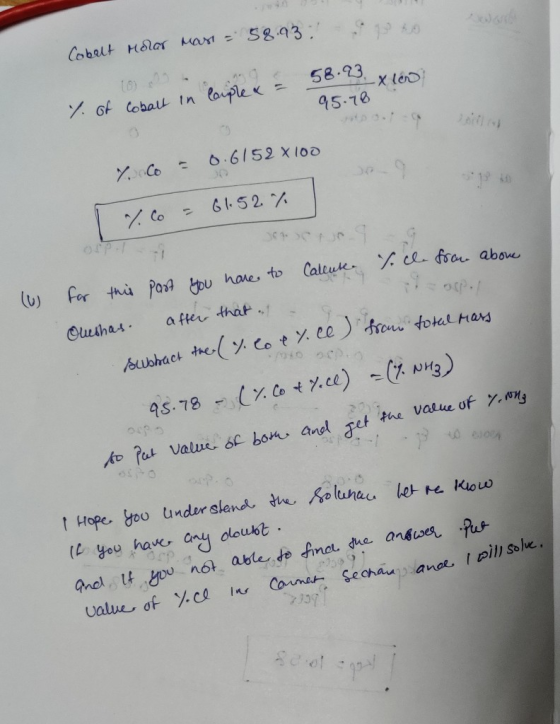 Cobalt Molar Mass = 58.93.
% of Cobalt in Complex = 58.93 / 95.78 × 100
% Co = 0.6152 × 100
% Co = 61.52 %
(b) for this part you have to Calculate % Cl from above
Question. after that.
Subtract the (% Co + % Cl) from total Mass
95.78 - (% Co + % Cl) = (% NH3)
so put value of both and get the value of % NH3
I Hope you Understend the Solution let me Know
if you have any doubt.
and if you not able to find the answer put
value of % Cl in Comment Section and I will solve.